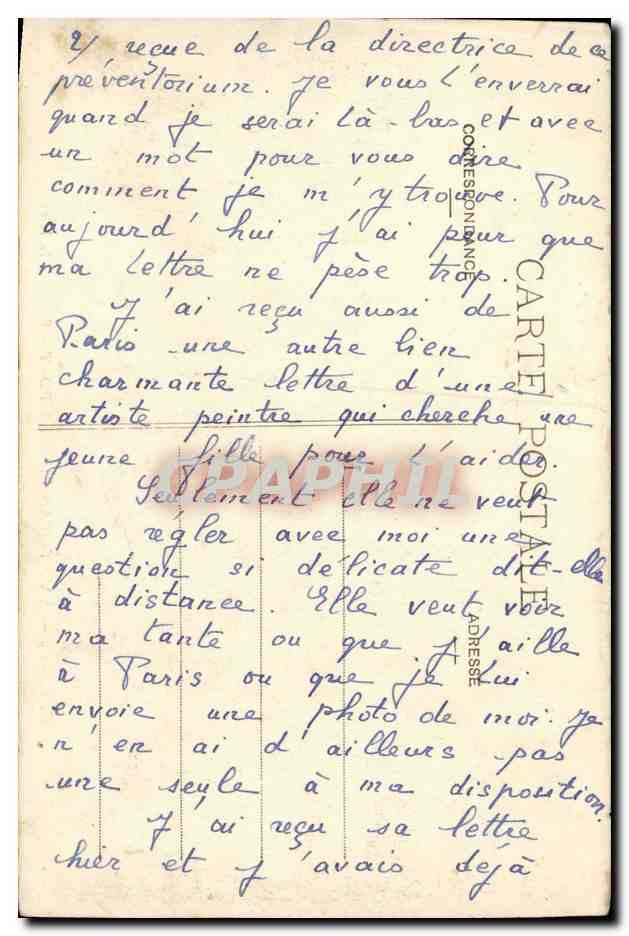 2/ reçue de la directrice de ce
préventorium. Je vous l'enverrai
quand je serai là-bas et avec
un mot pour vous dire
comment je m'y trouve. Pour
aujourd'hui j'ai peur que
ma lettre ne pèse trop.
J'ai reçu aussi de
Paris une autre bien
charmante lettre d'une
artiste peintre qui cherche une
jeune fille pour l'aider.
Seulement elle ne veut
pas régler avec moi une
question si délicate dit-elle
à distance. Elle veut voir
ma tante ou que j'aille
à Paris ou que je lui
envoie une photo de moi. Je
n'en ai d'ailleurs pas
une seule à ma disposition.
J'ai reçu sa lettre
hier et j'avais déjà
CARTE POSTALE
CORRESPONDANCE
ADRESSE
CPAPHIL